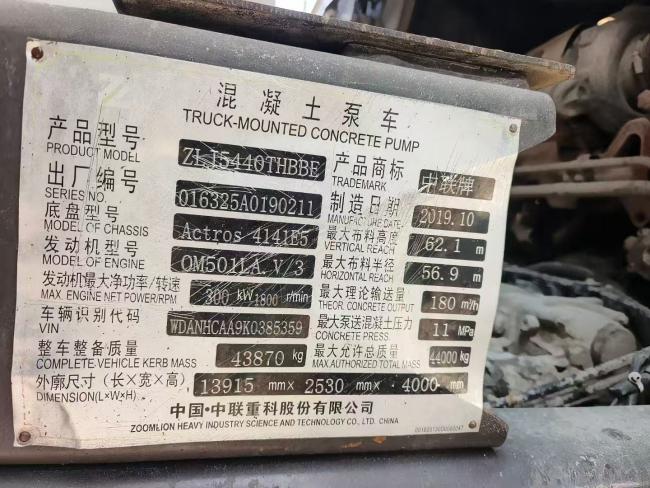 混凝土泵车
TRUCK-MOUNTED CONCRETE PUMP
产品型号 ZLJ5440THBBE 产品商标 中联牌
PRODUCT MODEL TRADEMARK
出厂编号 016325A0190211 制造日期 2019.10
SERIES NO. MANUFACTURE DATE
底盘型号 Actros 4141E5 最大布料高度 62.1 m
MODEL OF CHASSIS VERTICAL REACH
发动机型号 OM501LA.V/3 最大布料半径 56.9 m
MODEL OF ENGINE HORIZONTAL REACH
发动机最大净功率/转速 300 kW 1800 r/min 最大理论输送量 180 m³/h
MAX. ENGINE NET POWER/RPM THEOR. CONCRETE OUTPUT
车辆识别代码 WDANHCAA9K0385359 最大泵送混凝土压力 11 MPa
VIN CONCRETE PRESS.
整车整备质量 43870 kg 最大允许总质量 44000 kg
COMPLETE VEHICLE KERB MASS MAX. AUTHORIZED TOTAL MASS
外廓尺寸(长×宽×高) 13915 mm× 2530 mm× 4000 mm
DIMENSION(L×W×H)
中国·中联重科股份有限公司
ZOOMLION HEAVY INDUSTRY SCIENCE AND TECHNOLOGY CO., LTD. CHINA